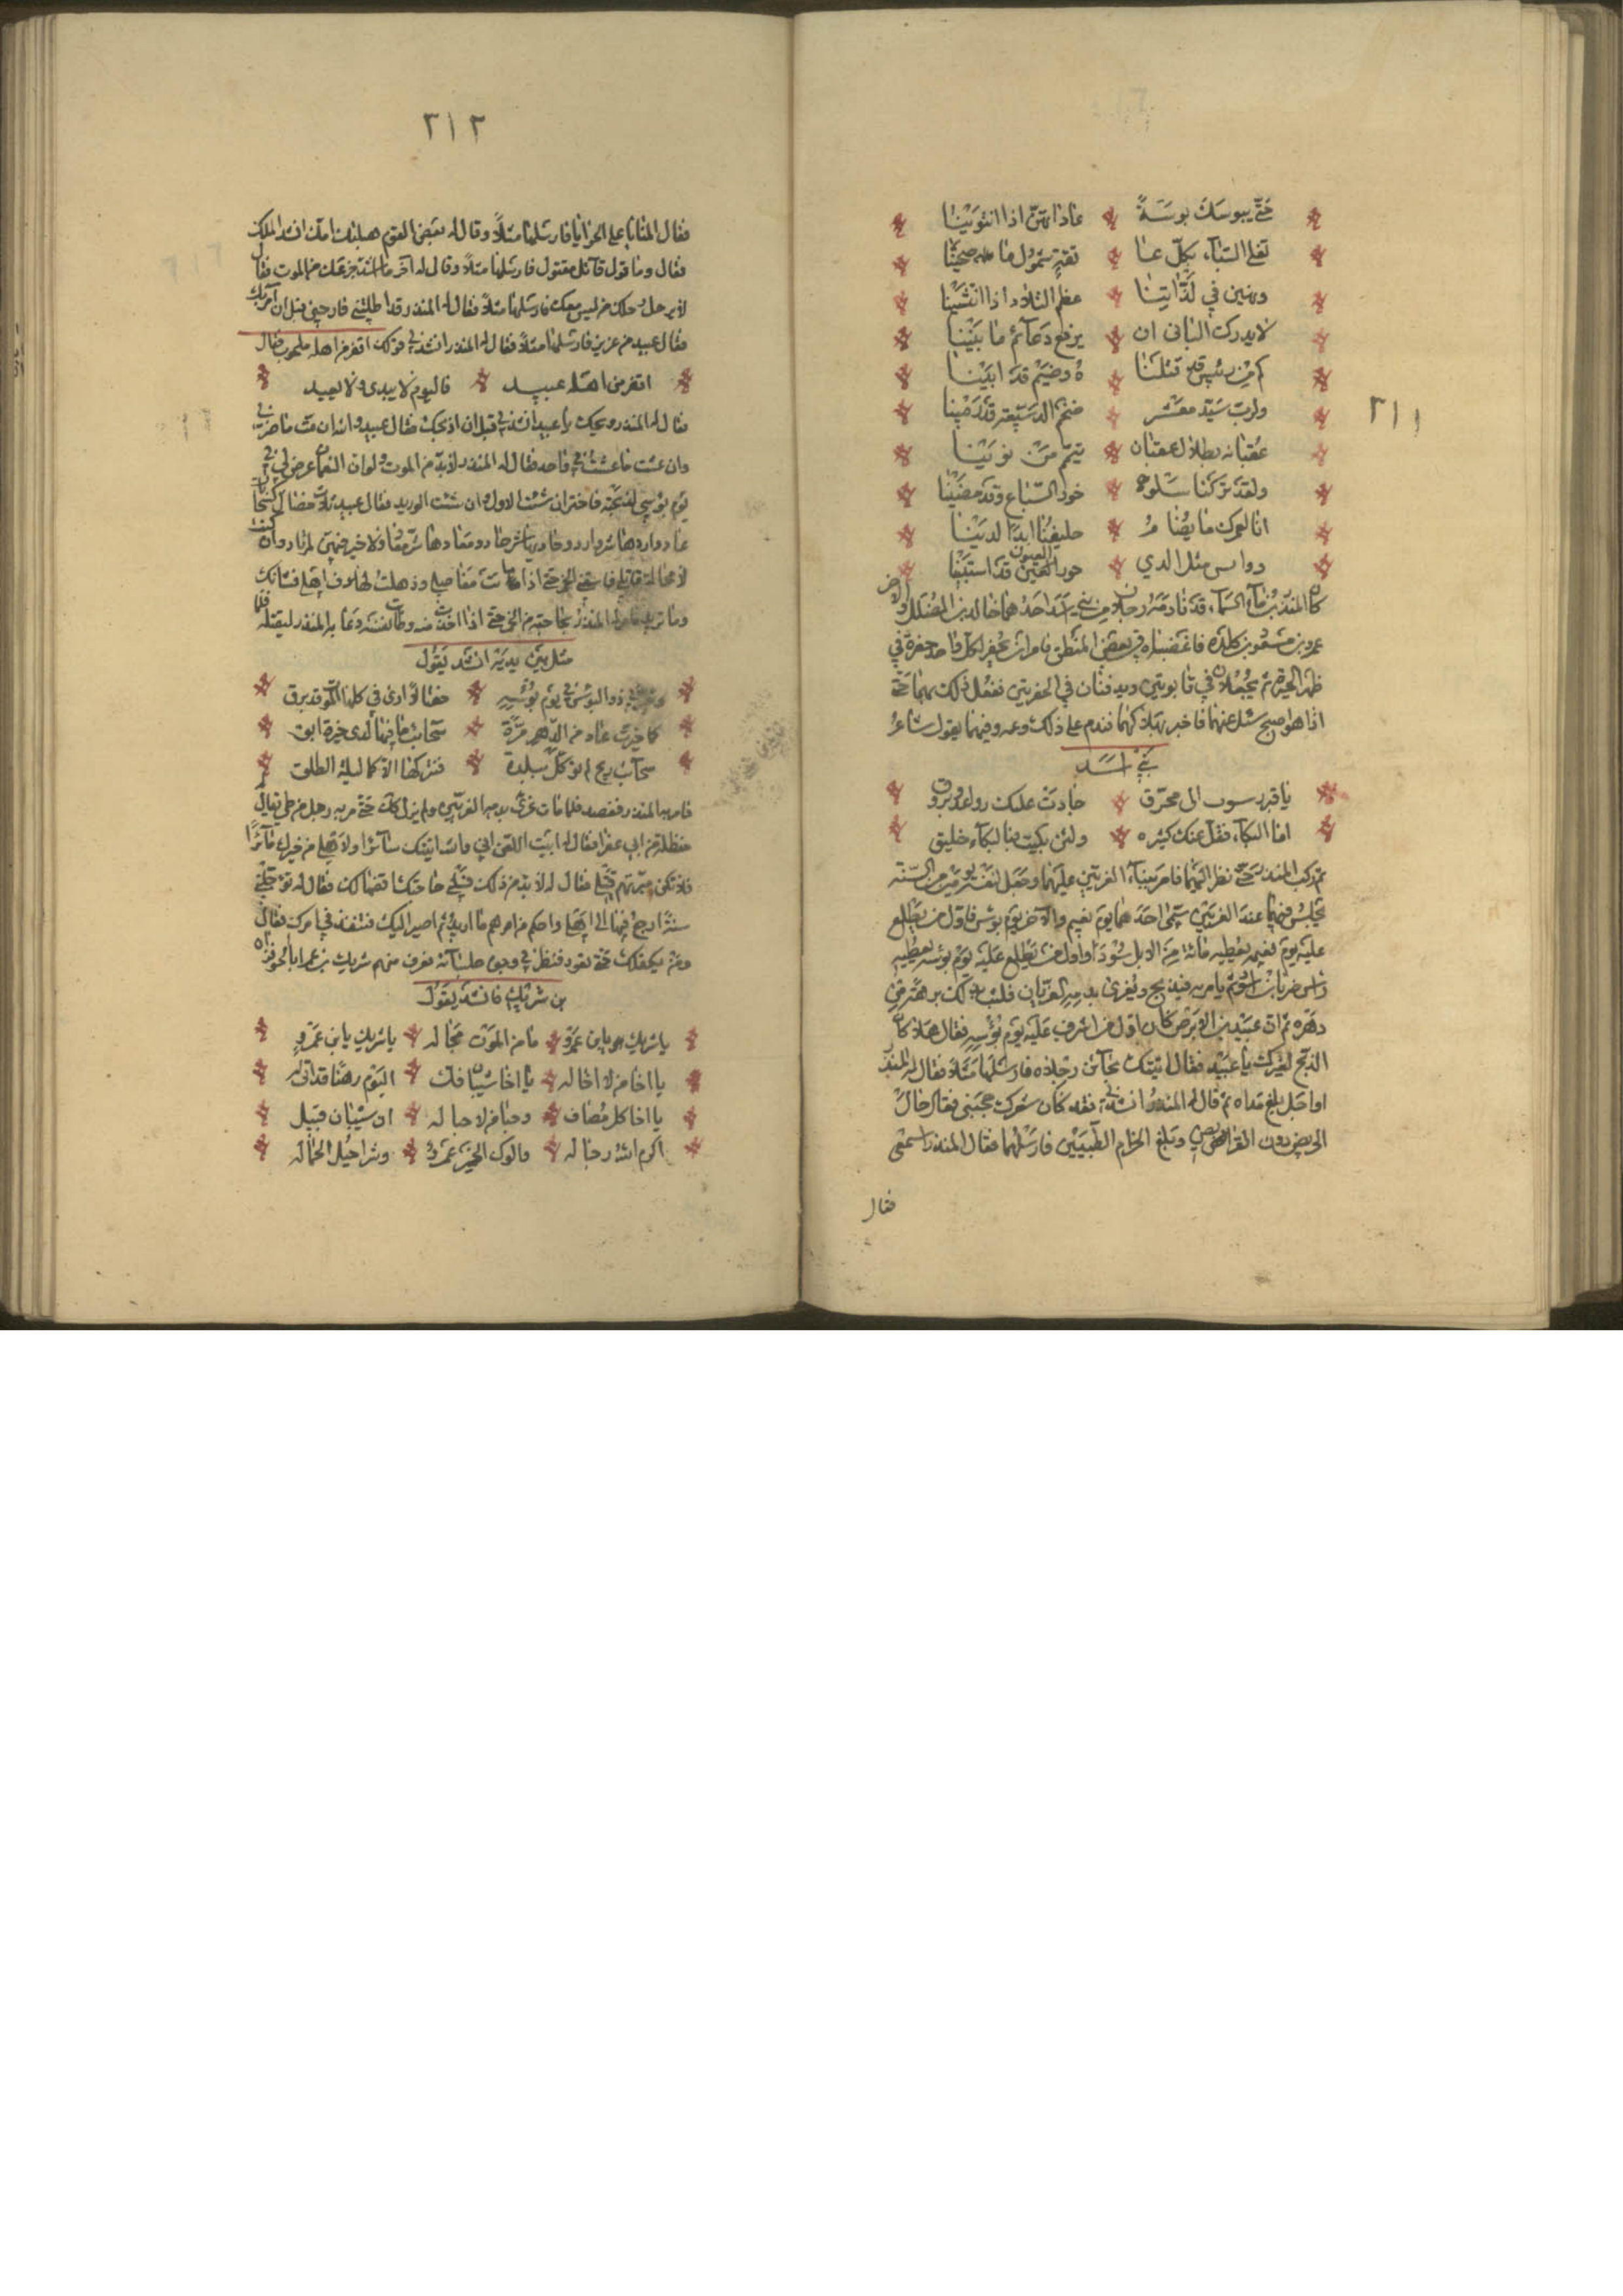 ٢١١
حتى يبوسك بوسة عاداتهن اذا انتوينا
نغلي السباء بكل عا تقة شمول ما صحينا
ونهين في لذاتنا عظم التلاد اذا انتشينا
لا يدرك الباني ان يرفع دعائم ما بنينا
كم من رئيس قد قتلنا ه وضيم قد ابينا
ولرب سيد معشر ضخم الدسيعة قد رمينا
عقبانه بظلال عقبان تيمم من نوينا
ولقد تركنا سلوه خور السباع وقد مضينا
انا لعمرك ما يضا م حليفنا ابدا لدينا
دوانس مثل الدمى حور العيون قد استبينا
كان المنذر بن ماء السماء قد نادمه رجلان من بني اسد احدهما خالد بن المضلل والاخر
عمرو بن مسعود بن كلدة فاغضباه في بعض المنطق فامر ان يحفر لكل واحد حفرة في
ظهر الحيرة ثم يجعلان في تابوتين ويدفنان في الحفرتين ففعل ذلك بهما حتى
اذا هو اصبح سئل عنهما فاخبر بهلاكهما فندم على ذلك وغمه وفيهما يقول شاعر
بني اسد
يا قبر بيوت ال محرق جادت عليك رواعد وبروق
اما البكاء فقل عنك كثيره ولئن بكيت فبالبكاء خليق
ثم ركب المنذر حتى نظر اليهما فامر ببناء الغريين عليهما وجعل لنفسه يومين من السنة
يجلس فيهما عند الغريين سمى احدهما يوم نعيم والاخر يوم بوس فاول من يطلع
عليه يوم نعيمه يعطيه مائة من الابل سودا واول من يطلع عليه يوم بوسه يعطيه
راس ظربان اسود ثم يامر به فيذبح ويغرى بدمه الغريان فلبث بذلك برهة من
دهره ثم ان عبيد بن الابرص كان اول من اشرف عليه يوم بؤسه فقال هلا كان
الذبح لغيرك يا عبيد فقال اتتك بحائن رجلاه فارسلها مثلا فقال له المنذر
او اجل بلغ مداه ثم قال له المنذر انشدني فقد كان شعرك يعجبني فقال حال
الجريض دون القريض وبلغ الحزام الطبيين فارسلها مثلا فقال المنذر اسمعني
فقال
٢١٢
فقال المنايا على الحوايا فارسلها مثلا وقال له بعض القوم هبلتك امك انشد الملك
فقال وما قول قائل مقتول فارسلها مثلا وقال له اخر ما اشد جزعك من الموت فقال
لا يرحل رحلك من ليس معك فارسلها مثلا فقال له المنذر قد امللتني فارحني قبل ان آمر بك
فقال عبيد من عز بز فارسلها مثلا فقال له المنذر انشدني قولك اقفر من اهله ملحوب فقال
اقفر من اهله عبيد فاليوم لا يبدي ولا يعيد
فقال له المنذر ويحك يا عبيد انشدني قبل ان اذبحك فقال عبيد والله ان مت ما ضرني
وان عشت ما عشت في واحده فقال له المنذر لا بد من الموت ولو ان النعمان عرض لي في
يوم بوسي لذبحته فاختر ان شئت الاكحل وان شئت الوريد فقال عبيد ثلاث خصال كسحابات
عاد واردها شر وارد وحاديها شر حاد ومعادها شر معاد ولا خير فيهن لمرتاد وان كنت
لا محالة قاتلي فاسقني الخمر حتى اذا ماتت مفاصلي وذهلت لها ذواهلي فشانك
وما تريد فامر له المنذر بحاجته من الخمر حتى اذا اخذت منه وطابت نفسه دعا به المنذر ليقتله فلما
مثل بين يديه انشد يقول
وخيرني ذو البوس في يوم بؤسه خصالا ارى في كلها الموت قد برق
كما خيرت عاد من الدهر مرة سحائب ما فيها لذي خيرة انق
سحائب ريح لم توكل ببلدة فتتركها الا كما ليلة الطلق
فامر به المنذر ففصد فلما مات غرى بدمه الغريين ولم يزل كذلك حتى مر به رجل من طي يقال له
حنظلة بن ابي عفرا فقال له ابيت اللعن اني والله اتيتك زائرا ولاهلي من خيرك مائرا
فلا تكن ميرتهم قتلي فقال له لا بد من ذلك فسلني حاجتك اقضها لك فقال له تؤجلني
سنة ارجع فيها الى اهلي واحكم من امرهم ما اريد ثم اصير اليك فتنفذ في امرك فقال
ومن يكفلك حتى تعود فنظر في وجوه جلسائه فعرف منهم شريك بن عمر ابا الحوفزان
بن شريك فانشد يقول
يا شريك يا بن عمرو ما من الموت محاله يا شريك يا بن عمرو
يا اخا من لا اخا له يا اخا شيبان فك اليوم رهنا قد اتى له
يا اخا كل مضاف وحيا من لا حيا له ان شيبان قبيل
اكرم الله رجاله وابوك الخير عمرو وشراحيل الحماله